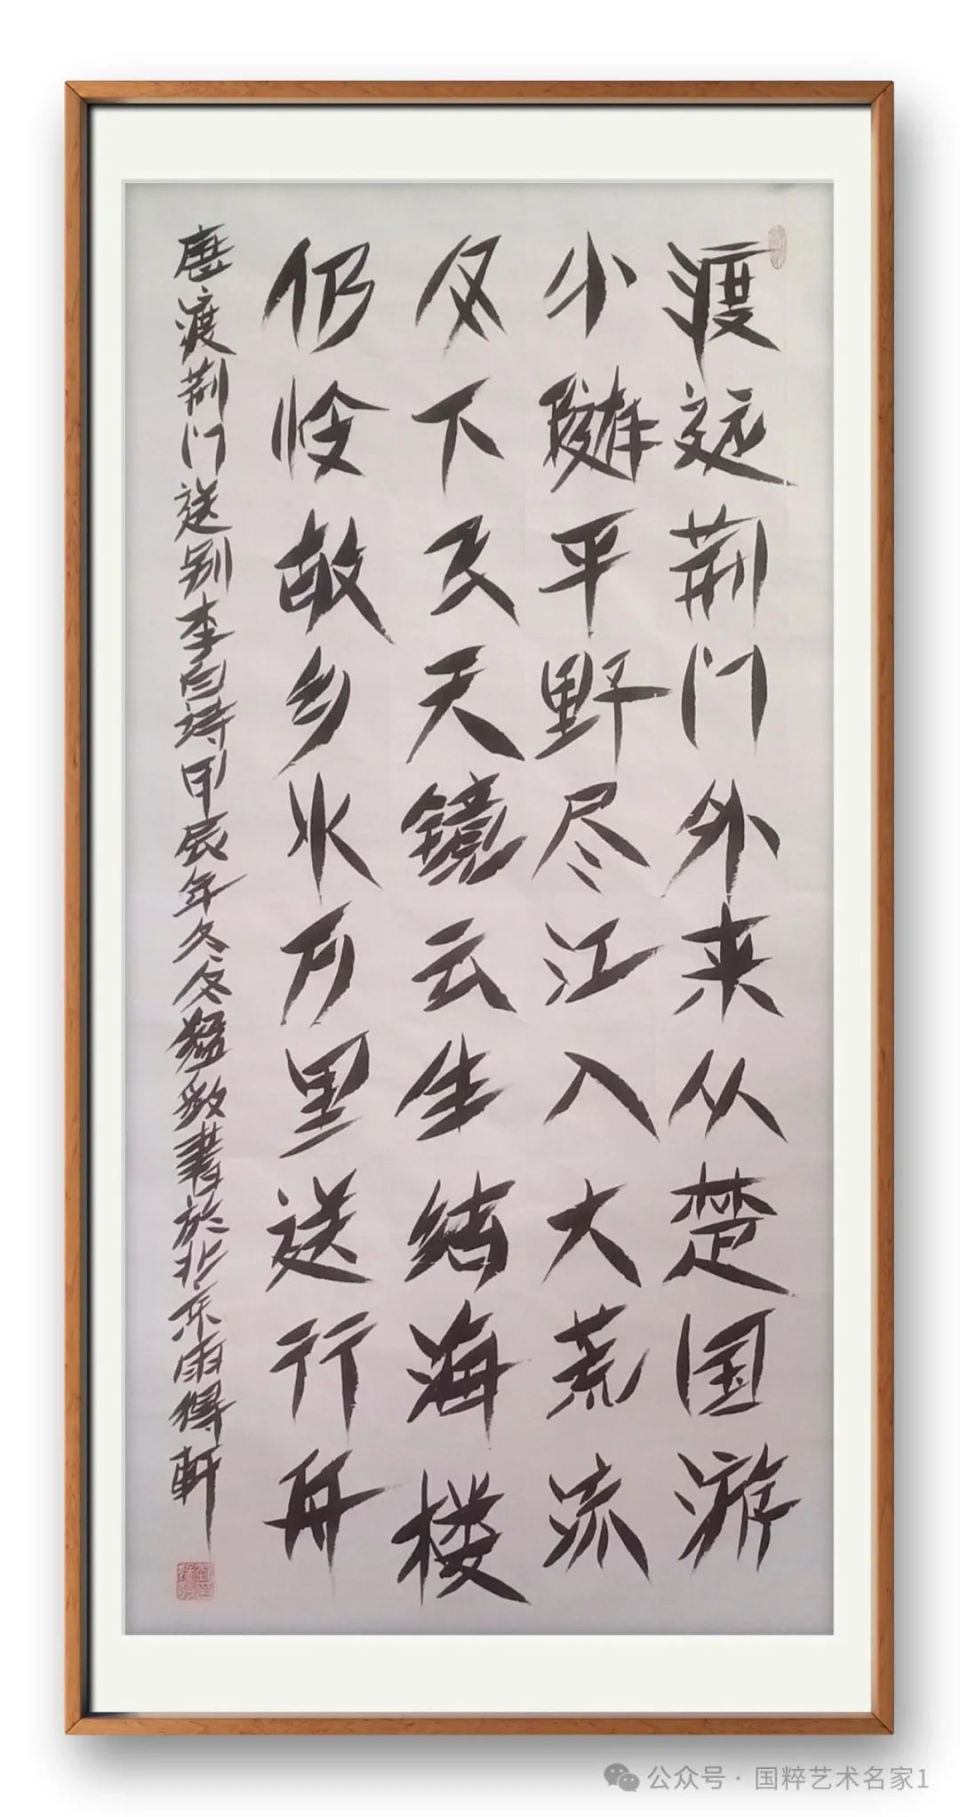 渡远荆门外来从楚国游
山随平野尽江入大荒流
月下飞天镜云生结海楼
仍怜故乡水万里送行舟
唐渡荆门送别李白诗甲辰年冬冬猛敬書於北京雨得軒
公众号 · 国粹艺术名家1